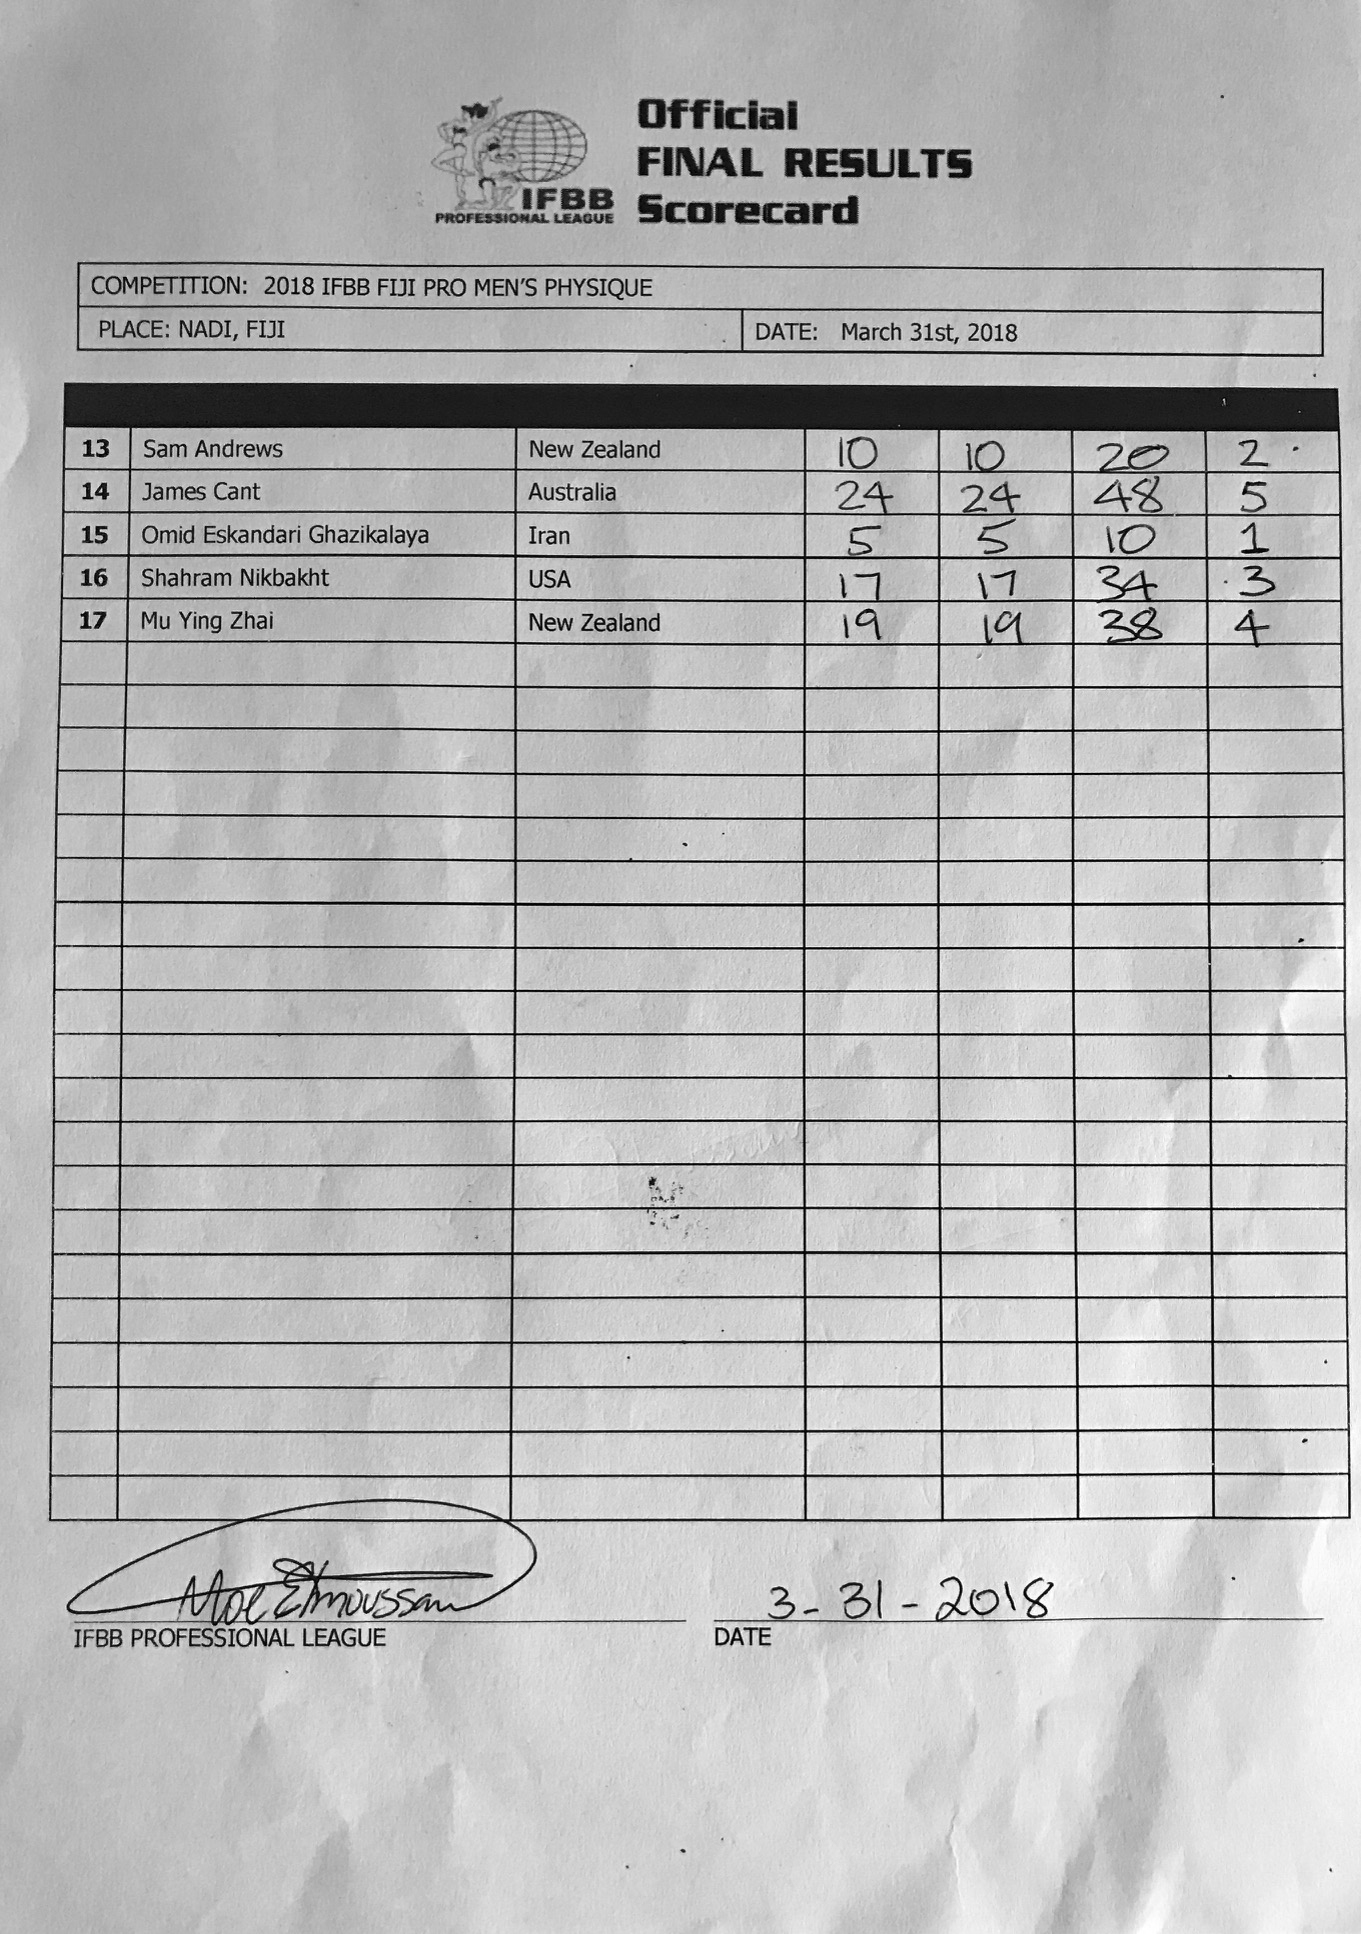 Official
FINAL RESULTS
Scorecard
IFBB
PROFESSIONAL LEAGUE
COMPETITION: 2018 IFBB FIJI PRO MEN'S PHYSIQUE
PLACE: NADI, FIJI DATE: March 31st, 2018
13 Sam Andrews New Zealand 10 10 20 2
14 James Cant Australia 24 24 48 5
15 Omid Eskandari Ghazikalaya Iran 5 5 10 1
16 Shahram Nikbakht USA 17 17 34 3
17 Mu Ying Zhai New Zealand 19 19 38 4
Moe Elmoussawi 3-31-2018
IFBB PROFESSIONAL LEAGUE DATE